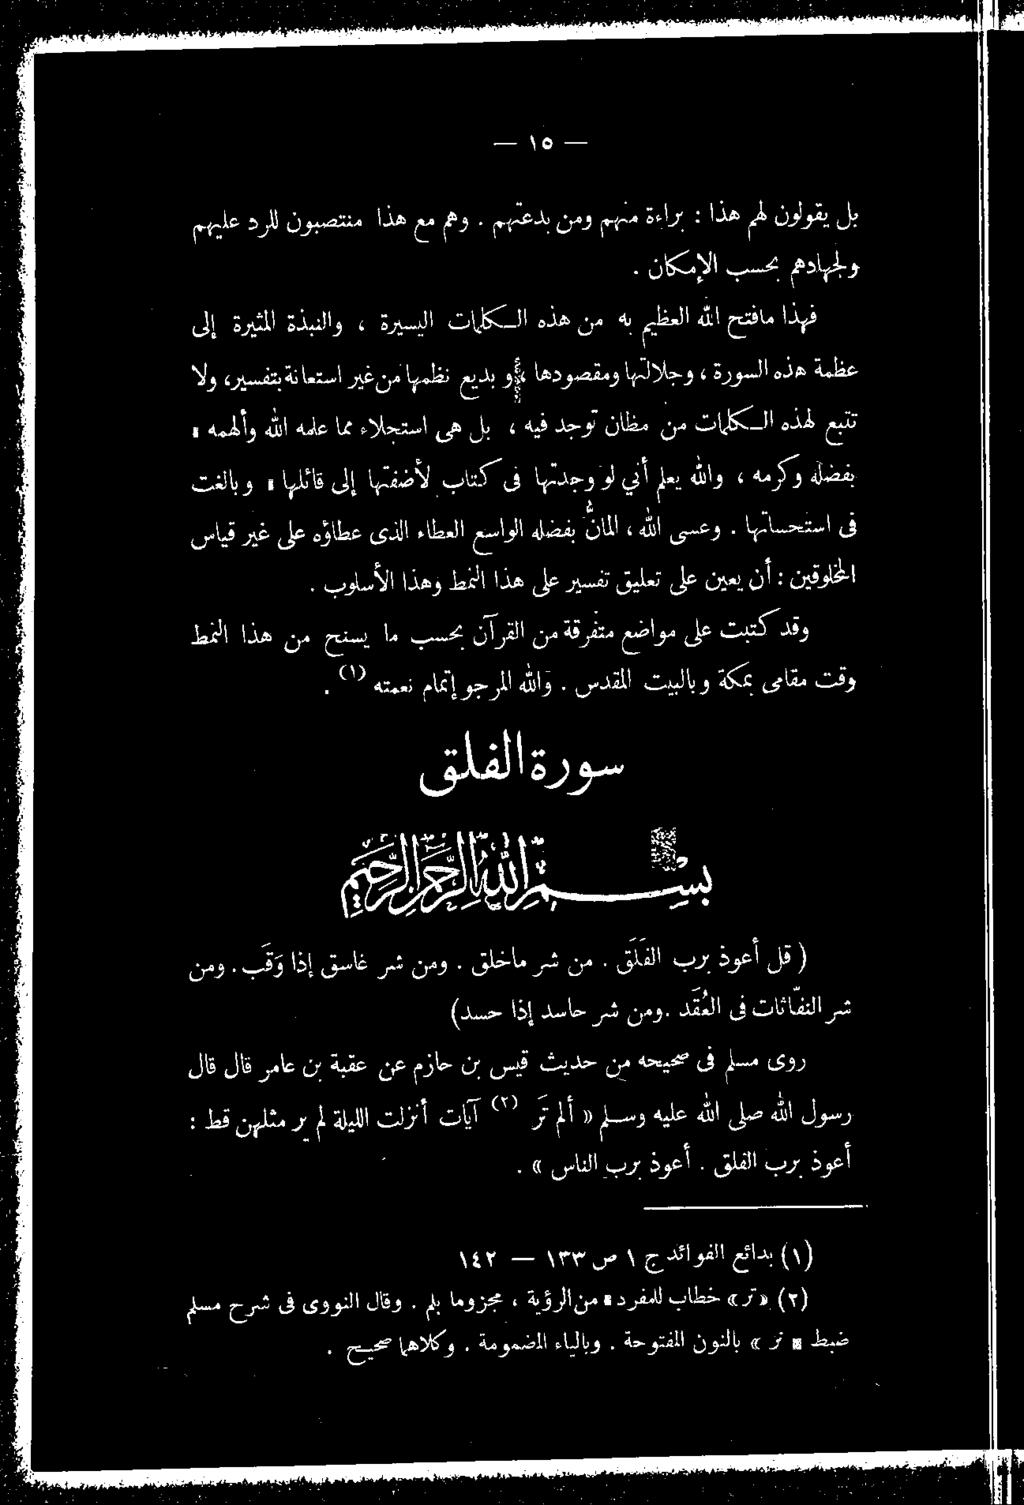 — ١٥ —
بل يقولون لهم هذا : براءة منهم ومن بدعتهم . وهم مع هذا منتصبون للرد عليهم
ولجهادهم بحسب الإمكان .
فهذا مافتح الله العظيم به من هذه الكلمات اليسيرة ، والنبذة المثيرة إلى
عظمة هذه السورة ، وجلالتها ومقصودها ، وبديع نظمها من غير استعانة بتفسير ، ولا
تتبع لهذه الكلمات من مظان توجد فيه ، بل هى استجلاء مما علمه الله وألهمه
بفضله وكرمه ، والله يعلم أني لو وجدتها فى كتاب لأضفتها إلى قائلها وبالغت
فى استحسانها . وعسى الله ، المانُّ بفضله الواسع العطاء الذى عطاؤه على غير قياس
المخلوقين : أن يعين على تعليق تفسير على هذا النمط وهذا الأسلوب .
وقد كتبت على مواضع متفرقة من القرآن بحسب ما يسنح من هذا النمط
وقت مقامى بمكة وبالبيت المقدس . والله المرجو إتمام نعمته (١) .
سورة الفلق
بسم الله الرحمن الرحيم
( قل أعوذ برب الفَلَق . من شر ماخلق . ومن شر غاسق إذا وَقَب . ومن
شر النفّاثات فى العُقَد . ومن شر حاسد إذا حسد)
روى مسلم فى صحيحه من حديث قيس بن حازم عن عقبة بن عامر قال قال
رسول الله صلى الله عليه وسلم « ألم تَر (٢) آيات أنزلت الليلة لم ير مثلهن قط :
أعوذ برب الفلق . أعوذ برب الناس » .
(١) بدائع الفوائد ج ١ ص ١٣٣ — ١٤٢
(٢) «تر» خطاب للمفرد من الرؤية ، مجزوما بلم . وقال النووى فى شرح مسلم
ضبط « تر » بالنون المفتوحة . وبالياء المضمومة . وكلاهما صحيح .